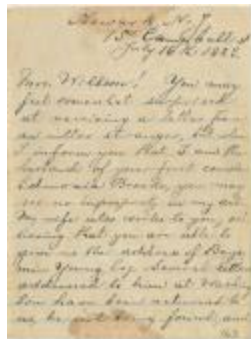 Newark, N.J.
15 Campbell St
July 16th 1882.
Mrs. Wilkson! You may
feel somewhat surprised
at receiving a letter from
an utter stranger, but when
I inform you that I am the
husband of your first cousin
Brooks, you may
see no impropriety in my
My wife also writes to you,
that you are able to
give me the address of
Young Esq. Several letters
addressed to him at
have been returned to
me, he not being found, and